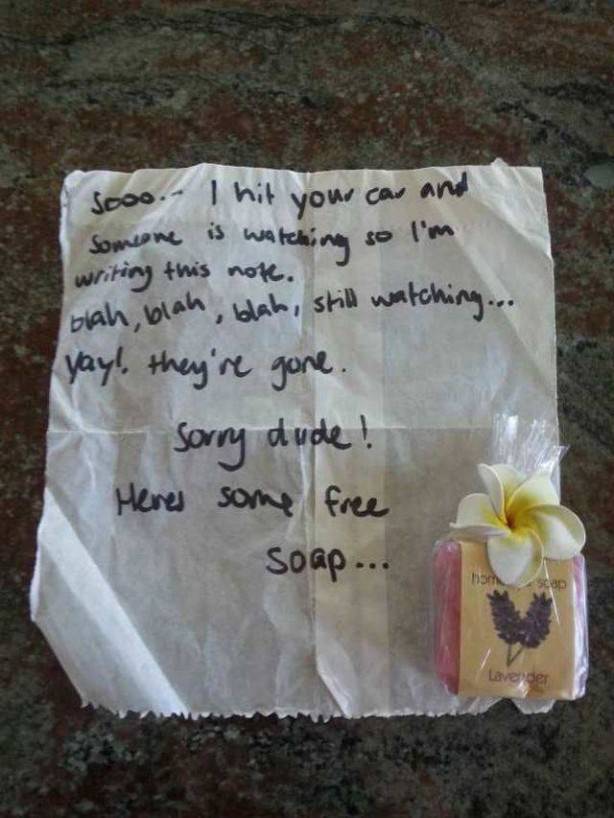 Sooo... I hit your car and
Someone is watching so I'm
writing this note.
blah, blah, blah, still watching...
yay! they're gone.
Sorry dude!
Heres some free
soap...
soap
Lavender